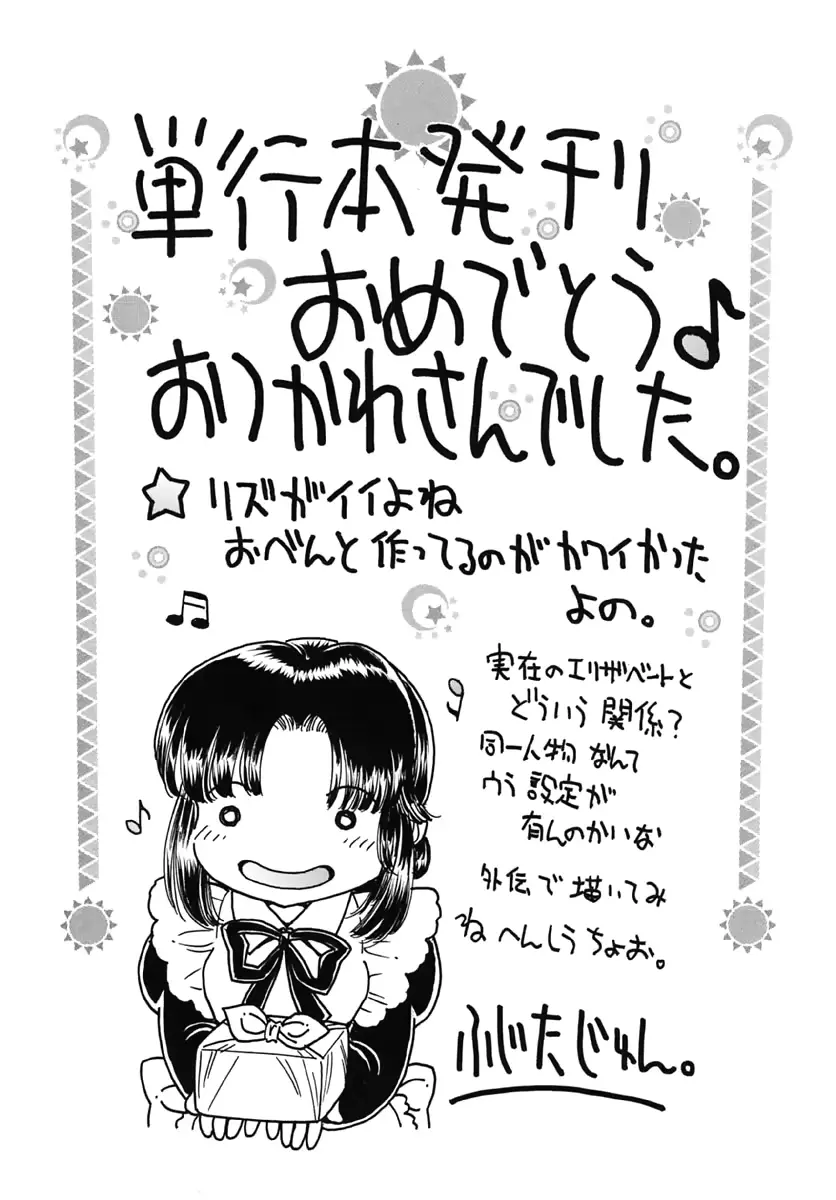 単行本発刊
おめでとう♪
おりかわさんでした。
☆リズがイイよね
おべんと作ってるのがカワイかった
よの。
実在のエリザベートと
どういう関係?
同一人物なんて
ウラ設定が
有んのかいな
外伝で描いてみ
ね へんしうちょお。
ふじたじゅん。